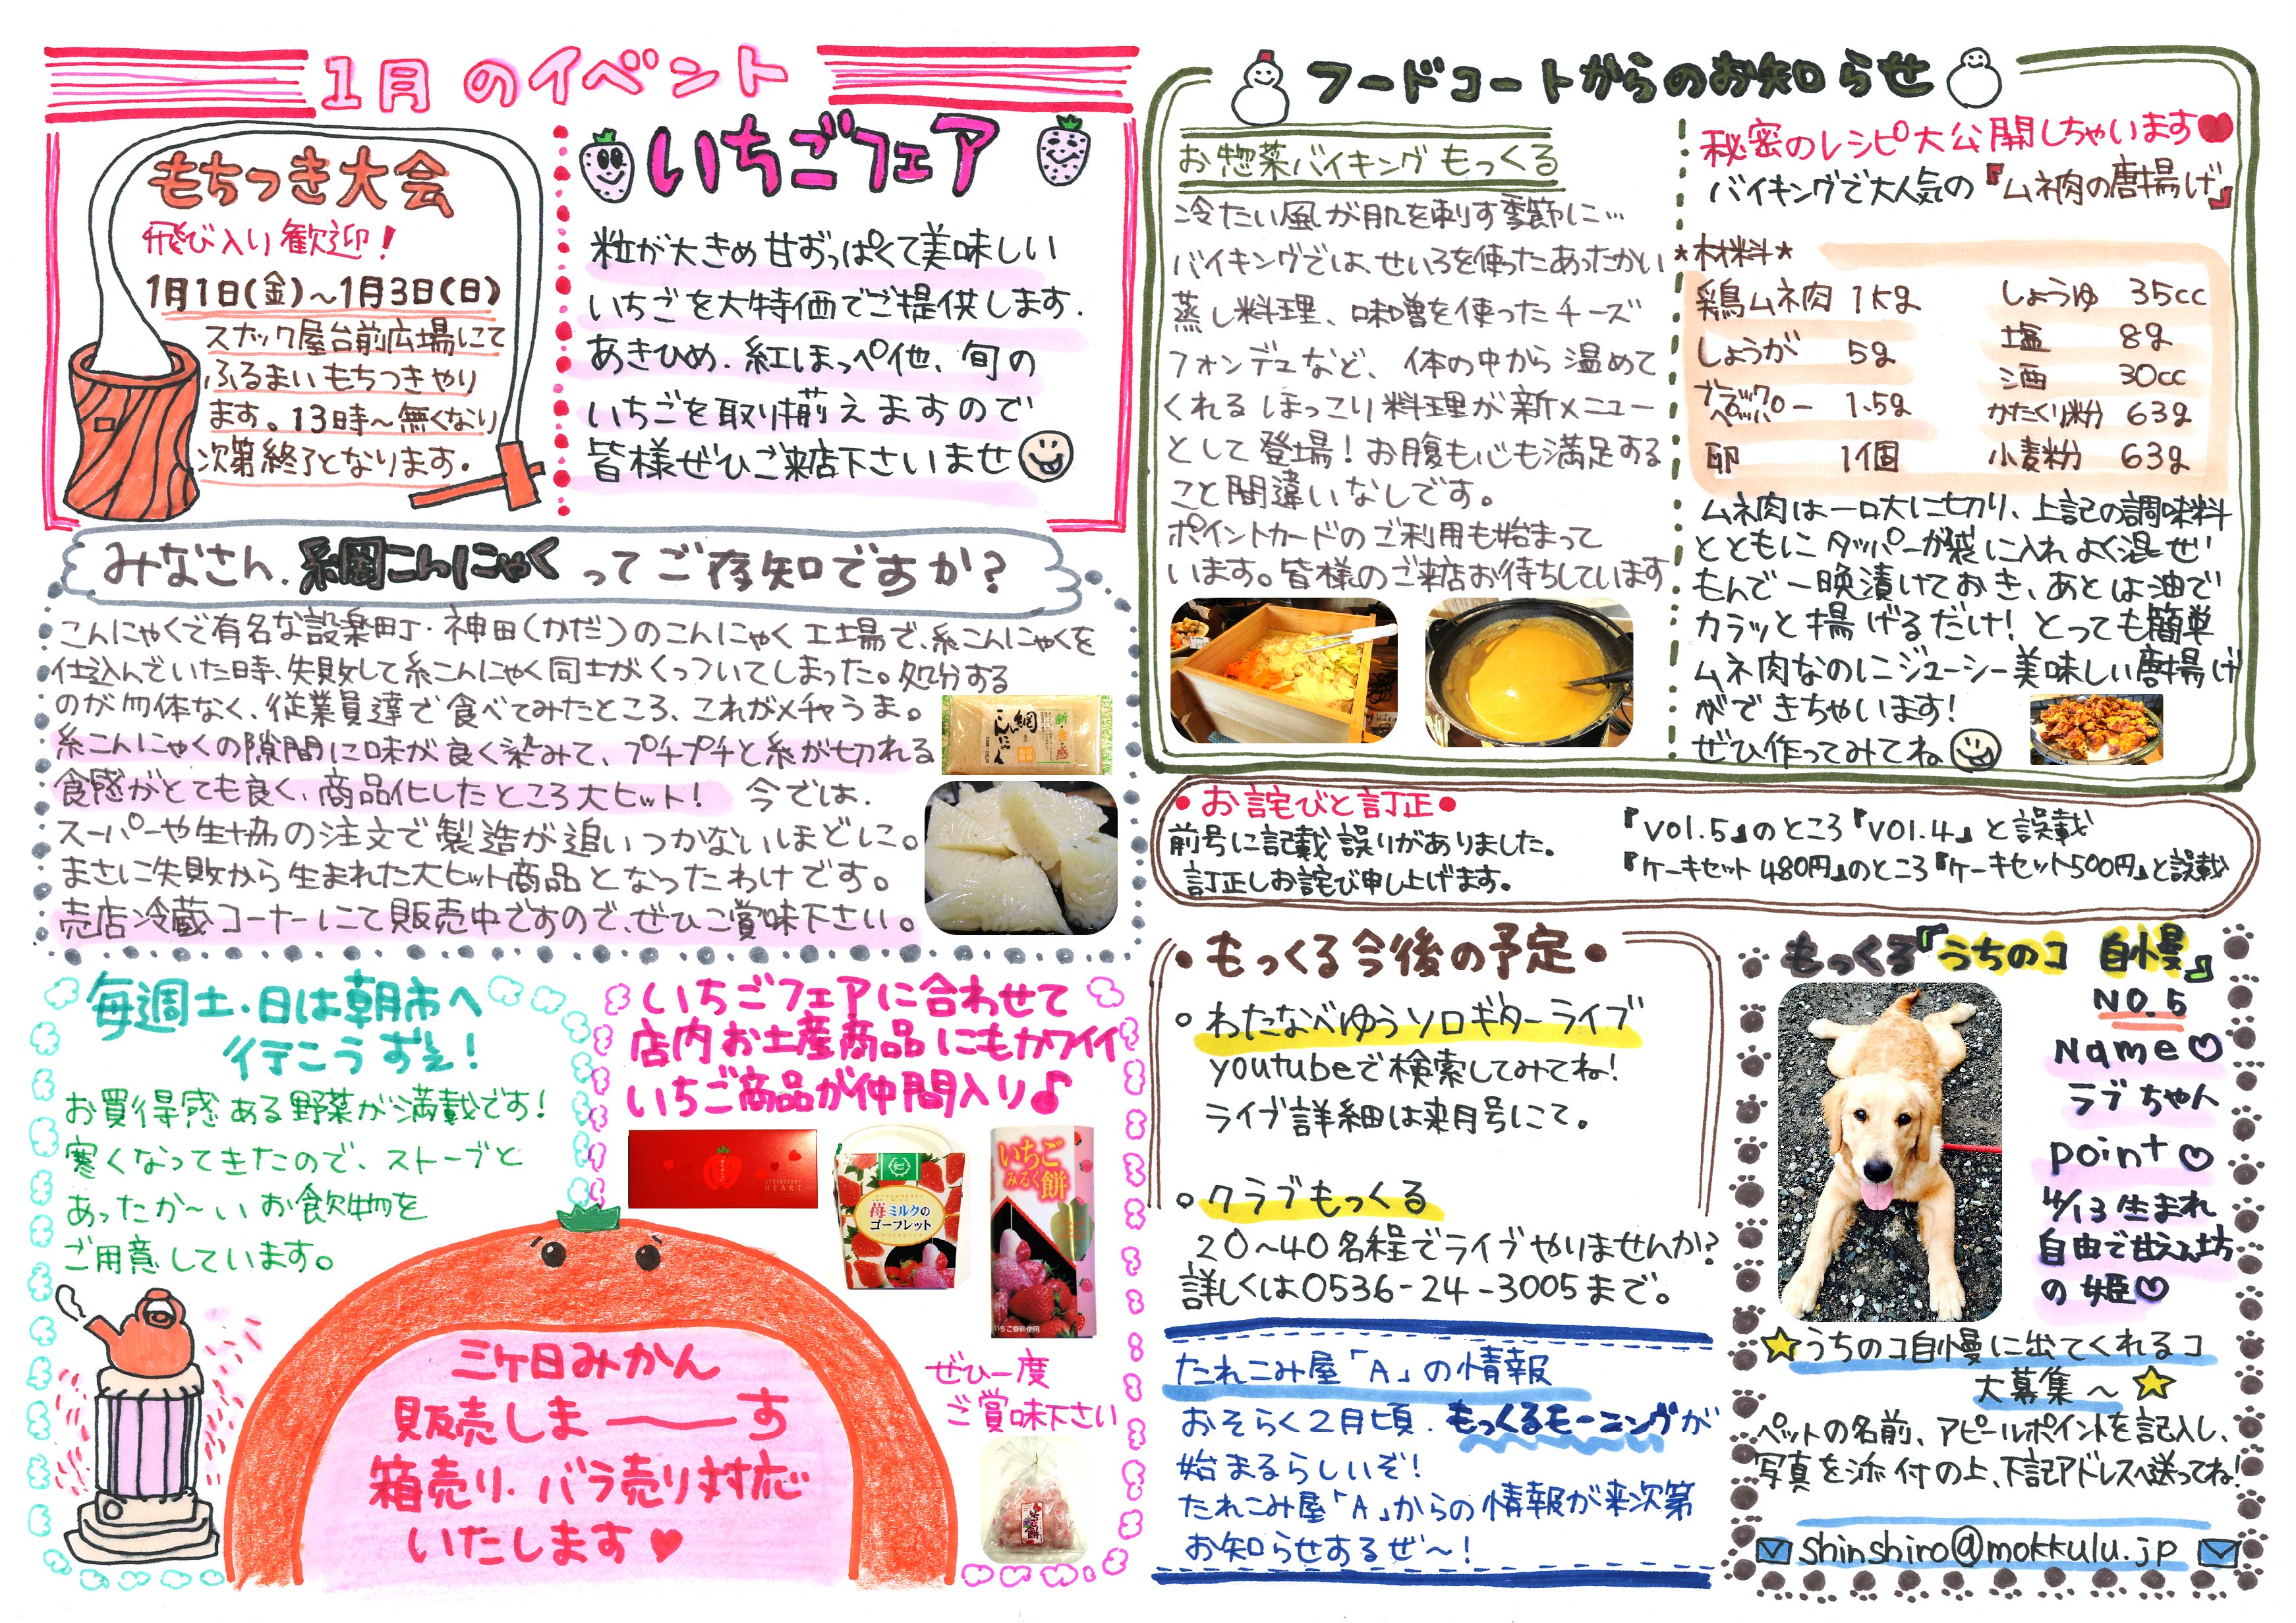 1月のイベント
もちつき大会
飛び入り歓迎！
1月1日(金)～1月3日(日)
スナック屋台前広場にて
ふるまいもちつきやり
ます。13時～無くなり
次第終了となります。
いちごフェア
粒が大きめ甘ずっぱくて美味しい
いちごを大特価でご提供します.
あきひめ.紅ほっぺ他、旬の
いちごを取り揃えますので
皆様ぜひご来店下さいませ
みなさん.糸網こんにゃくってご存知ですか？
こんにゃくで有名な設楽町・神田(かだ)のこんにゃく工場で、糸こんにゃくを
仕込んでいた時、失敗して糸こんにゃく同士がくっついてしまった。処分する
のが勿体なく、従業員達で食べてみたところ、これがメチャうま。
糸こんにゃくの隙間に味が良く染みて、プチプチと糸が切れる
食感がとても良く、商品化したところ大ヒット！ 今では.
スーパーや生協の注文で製造が追いつかないほどに。
まさに失敗から生まれた大ヒット商品となったわけです。
売店冷蔵コーナーにて販売中ですので、ぜひご賞味下さい。
新・食・感
網
こんにゃく
毎週土・日は朝市へ
行こうずえ！
お買得感ある野菜が満載です！
寒くなってきたので、ストーブと
あったか～いお飲物を
ご用意しています。
いちごフェアに合わせて
店内お土産商品にもカワイイ
いちご商品が仲間入り♪
STRAWBERRY
HEART
苺ミルクの
ゴーフレット
いちご
みるく餅
いちご春香使用
ぜひ一度
ご賞味下さい
三ケ日みかん
販売しま――す
箱売り・バラ売り対応
いたします♥
フードコートからのお知らせ
お惣菜バイキングもっくる
冷たい風が肌を刺す季節に…
バイキングでは、せいろを使ったあったかい
蒸し料理、味噌を使ったチーズ
フォンデュなど、体の中から温めて
くれるほっこり料理が新メニュー
として登場！お腹も心も満足する
こと間違いなしです。
ポイントカードのご利用も始まって
います。皆様のご来店お待ちしています
秘密のレシピ大公開しちゃいます♥
バイキングで大人気の『ムネ肉の唐揚げ』
*材料*
鶏ムネ肉 1kg
しょうが 5g
ブラックペッパー 1.5g
卵 1個
しょうゆ 35cc
塩 8g
酒 30cc
かたくり粉 63g
小麦粉 63g
ムネ肉は一口大に切り、上記の調味料
とともにタッパーか袋に入れよく混ぜ
もんで一晩漬けておき、あとは油で
カラッと揚げるだけ！とっても簡単
ムネ肉なのにジューシー美味しい唐揚げ
ができちゃいます！
ぜひ作ってみてね
●お詫びと訂正●
前号に記載誤りがありました。
訂正しお詫び申し上げます。
『vol.5』のところ『vol.4』と誤載
『ケーキセット480円』のところ『ケーキセット500円』と誤載
●もっくる今後の予定●
○わたなべゆうソロギターライブ
youtubeで検索してみてね！
ライブ詳細は来月号にて。
○クラブもっくる
20～40名程でライブやりませんか？
詳しくは0536-24-3005まで。
たれこみ屋「A」の情報
おそらく2月頃.もっくるモーニングが
始まるらしいぞ！
たれこみ屋「A」からの情報が来次第
お知らせするぜ～！
もっくる『うちのコ 自慢』
NO.5
Name♡
ラブちゃん
point♡
4/13生まれ
自由で甘えん坊
の姫♡
☆うちのコ自慢に出てくれるコ
大募集～☆
ペットの名前、アピールポイントを記入し、
写真を添付の上、下記アドレスへ送ってね！
shinshiro@mokkulu.jp